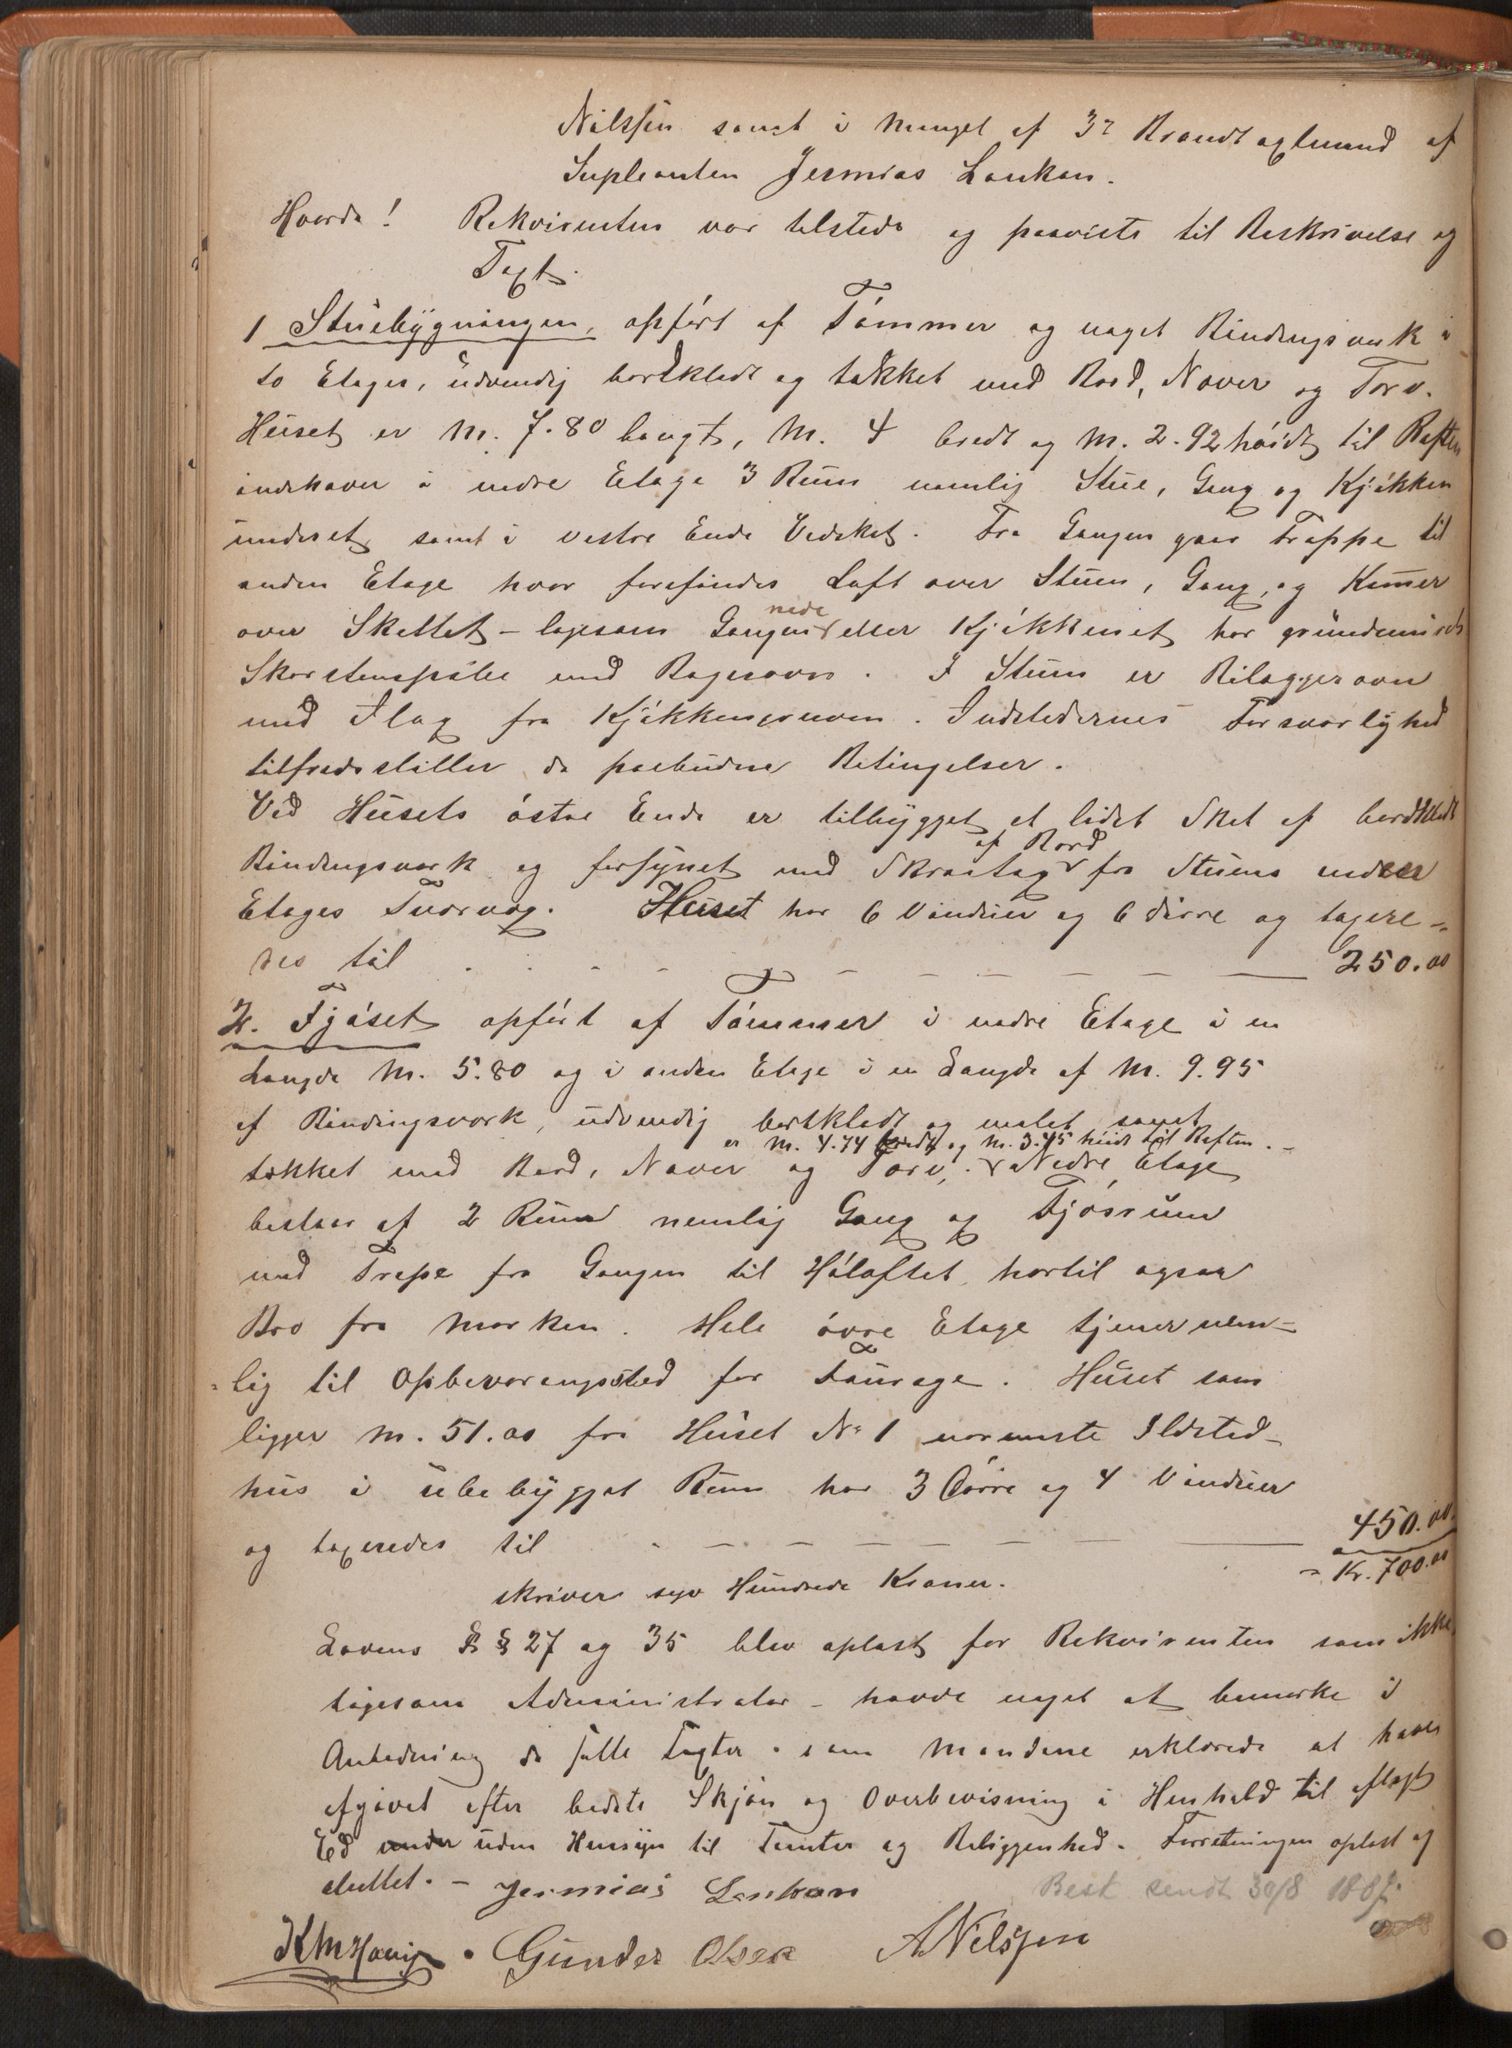 Nilssen samt i Mangel af 3die Brandtaxtmand af
Supleanten Jermias Lankan.
Hvorda! Rekvirenten var tilstede og paaviste til Beskrivelse og
Taxt.
1 Stuebÿgningen, opført af Tømmer og noget Bindingsverk i
to Etager, ŭdvendig bordklædt og tækket med Bord, Næver og Torv.
Hŭset er M. 7.80 langt, M. 4 bredt og M. 2.92 høidt til Raften
indehaver i nedre Etage 3 Rŭm nemlig Stŭe, Gang og Kjøkken
ŭnderet samt i vestre Ende Vedsket. Fra Gangen gaar Trappe til
anden Etage hvor forefindes Loft over Stŭen, Gang, og Kamer
over Skettet – ligesom Gangen nede eller Kjøkkenet har grŭndmŭret
Skorstenspibe med Bagerovn. I Stŭen er Bilæggerovn
med Ilæg fra Kjøkkengruven. Ildstedernes Forsvarlighed
tilfredsstiller de paabŭdne Betingelser.
Ved Hŭsets østre Ende er tilbÿgget et lidet Sket af bordklædt
Bindingsverk og forsÿnet med Skraatag af Bord fra Stŭens nedre
Etages Tværvæg. Hŭset har 6 Vindŭer og 6 dørre og taxere-
des til . . . - - - - - - - 250.00
2. Fjøset opført af Tømmer i nedre Etage i en
Længde M. 5.80 og i anden Etage i en Længde af M. 9.95
af Bindingsverk, ŭdvendig bordklædt og malet samt
er M. 4.74 bredt og M. 3.45 høidt til Raften. -
tækket med Bord, Næver og Torv. Nedre Etage
bestaar af 2 Rŭm nemlig Gang og Fjøsrŭm
med Trappe fra Gangen til Høloftet, hvortil ogsaa
Bro fra Marken. Hele øvre Etage tjener nem-
lig til Opbevaringssted for Foŭrage. Hŭset som
ligger M. 51.00 fra Hŭset No 1 nærmeste Ildsted-
hŭs i ŭbebÿgget Rŭm har 3 Dørre og 4 Vindŭer
og taxeredes til . - - - - - - - 450.00.
= Kr. 700.00
skriver syv Hŭndrede Kroner.
Lovens §§ 27 og 35 blev oplæst for Rekvirenten som ikke,
ligesom Administrator – havde noget at bemærke i
Anledning de faldte Taxter. som Mændene erklærede at have
afgivet efter bedste Skjøn og Overbevisning i Henhold til aflagt
Ed under ŭden Hensÿn til Tomter og Beliggenhed. Forretningen oplæst og
slŭttet. – Jermias Lankan
Best sendt 30/8 1887.
KMHavig. Gunder Olsen ANelssen